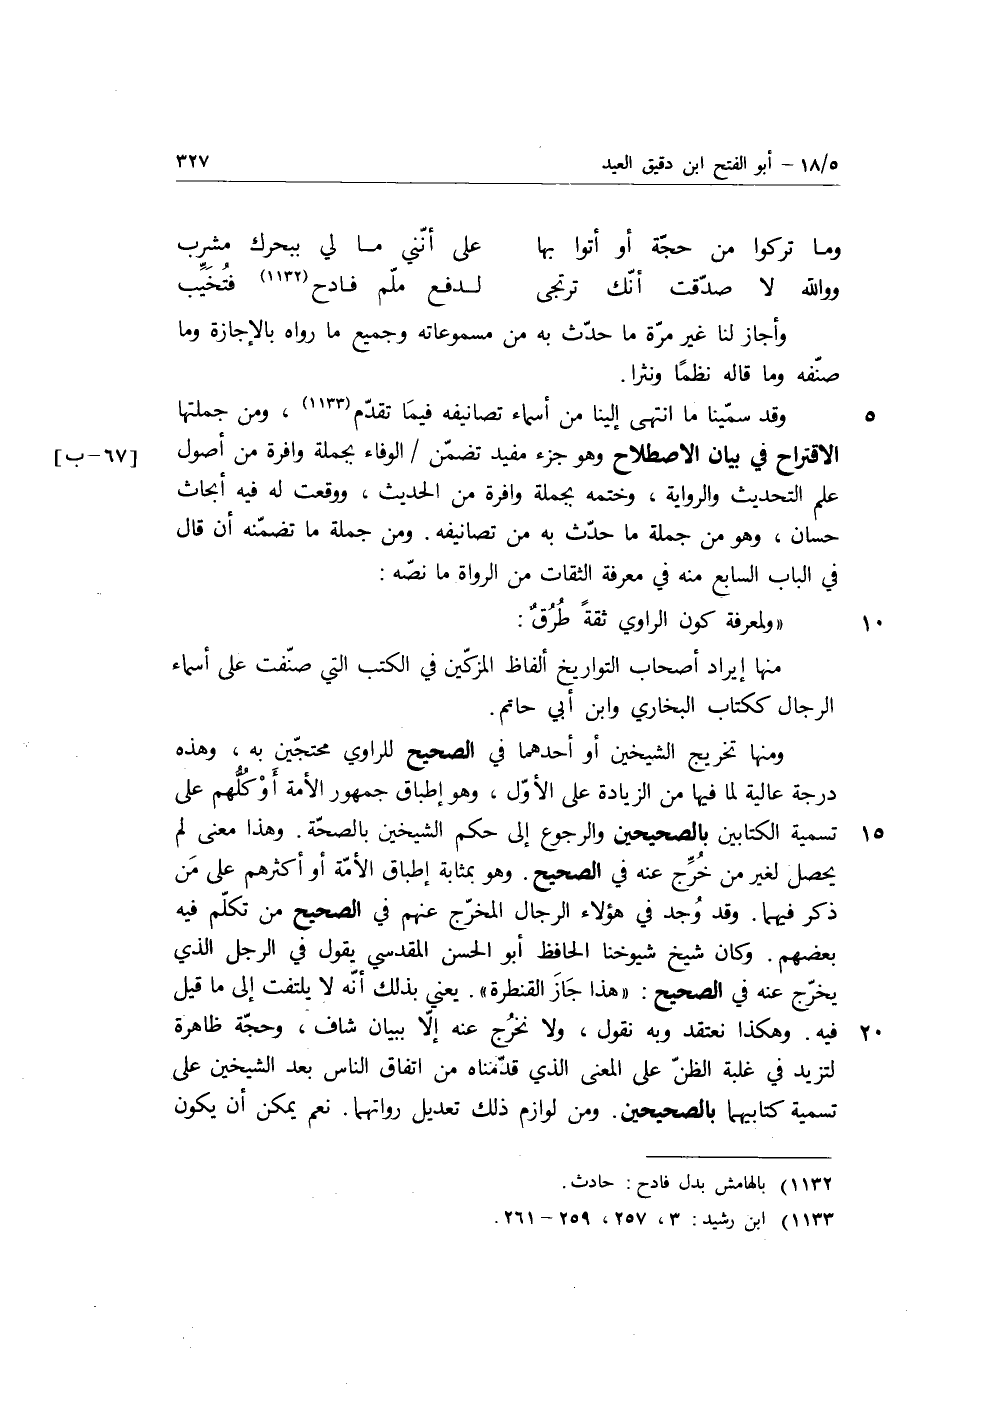 ١٨/٥ – أبو الفتح ابن دقيق العيد ٣٢٧
وما تركوا من حجّة أو أتوا بها على أنّني ما لي ببحرك مشرب
ووالله لا صدّقت أنّك ترتجى لدفع ملّم فادح(١١٣٢) فتُخَيِّب
وأجاز لنا غير مرّة ما حدّث به من مسموعاته وجميع ما رواه بالإجازة وما
صنّفه وما قاله نظمًا ونثرا.
٥ وقد سمّينا ما انتهى إلينا من أسماء تصانيفه فيمَا تقدّم(١١٣٣) ، ومن جملتها
الاقتراح في بيان الاصطلاح وهو جزء مفيد تضمّن / الوفاء بجملة وافرة من أصول [٦٧–ب]
علم التحديث والرواية ، وختمه بجملة وافرة من الحديث ، ووقعت له فيه أبحاث
حسان ، وهو من جملة ما حدّث به من تصانيفه. ومن جملة ما تضمّنه أن قال
في الباب السابع منه في معرفة الثقات من الرواة ما نصّه :
١٠ «ولمعرفة كون الراوي ثقةً طُرُقٌ :
منها إيراد أصحاب التواريخ ألفاظ المزكّين في الكتب التي صنّفت على أسماء
الرجال ككتاب البخاري وابن أبي حاتم.
ومنها تخريج الشيخين أو أحدهما في الصحيح للراوي محتجّين به ، وهذه
درجة عالية لما فيها من الزيادة على الأوّل ، وهو إطباق جمهور الأمة أَوْ كُلُّهم على
١٥ تسمية الكتابين بالصحيحين والرجوع إلى حكم الشيخين بالصحّة. وهذا معنى لم
يحصل لغير من خُرِّج عنه في الصحيح. وهو بمثابة إطباق الأمّة أو أكثرهم على مَن
ذكر فيهما. وقد وُجد في هؤلاء الرجال المخرّج عنهم في الصحيح من تكلّم فيه
بعضهم. وكان شيخ شيوخنا الحافظ أبو الحسن المقدسي يقول في الرجل الذي
يخرّج عنه في الصحيح : «هذا جَازَ القنطرة». يعني بذلك أنّه لا يلتفت إلى ما قيل
٢٠ فيه. وهكذا نعتقد وبه نقول ، ولا نخرُج عنه إلّا ببيان شاف ، وحجّة ظاهرة
لتزيد في غلبة الظنّ على المعنى الذي قدّمناه من اتفاق الناس بعد الشيخين على
تسمية كتابيهما بالصحيحين. ومن لوازم ذلك تعديل رواتهما. نعم يمكن أن يكون
١١٣٢) بالهامش بدل فادح : حادث.
١١٣٣) ابن رشيد : ٣ ، ٢٥٧ ، ٢٥٩ – ٢٦١.